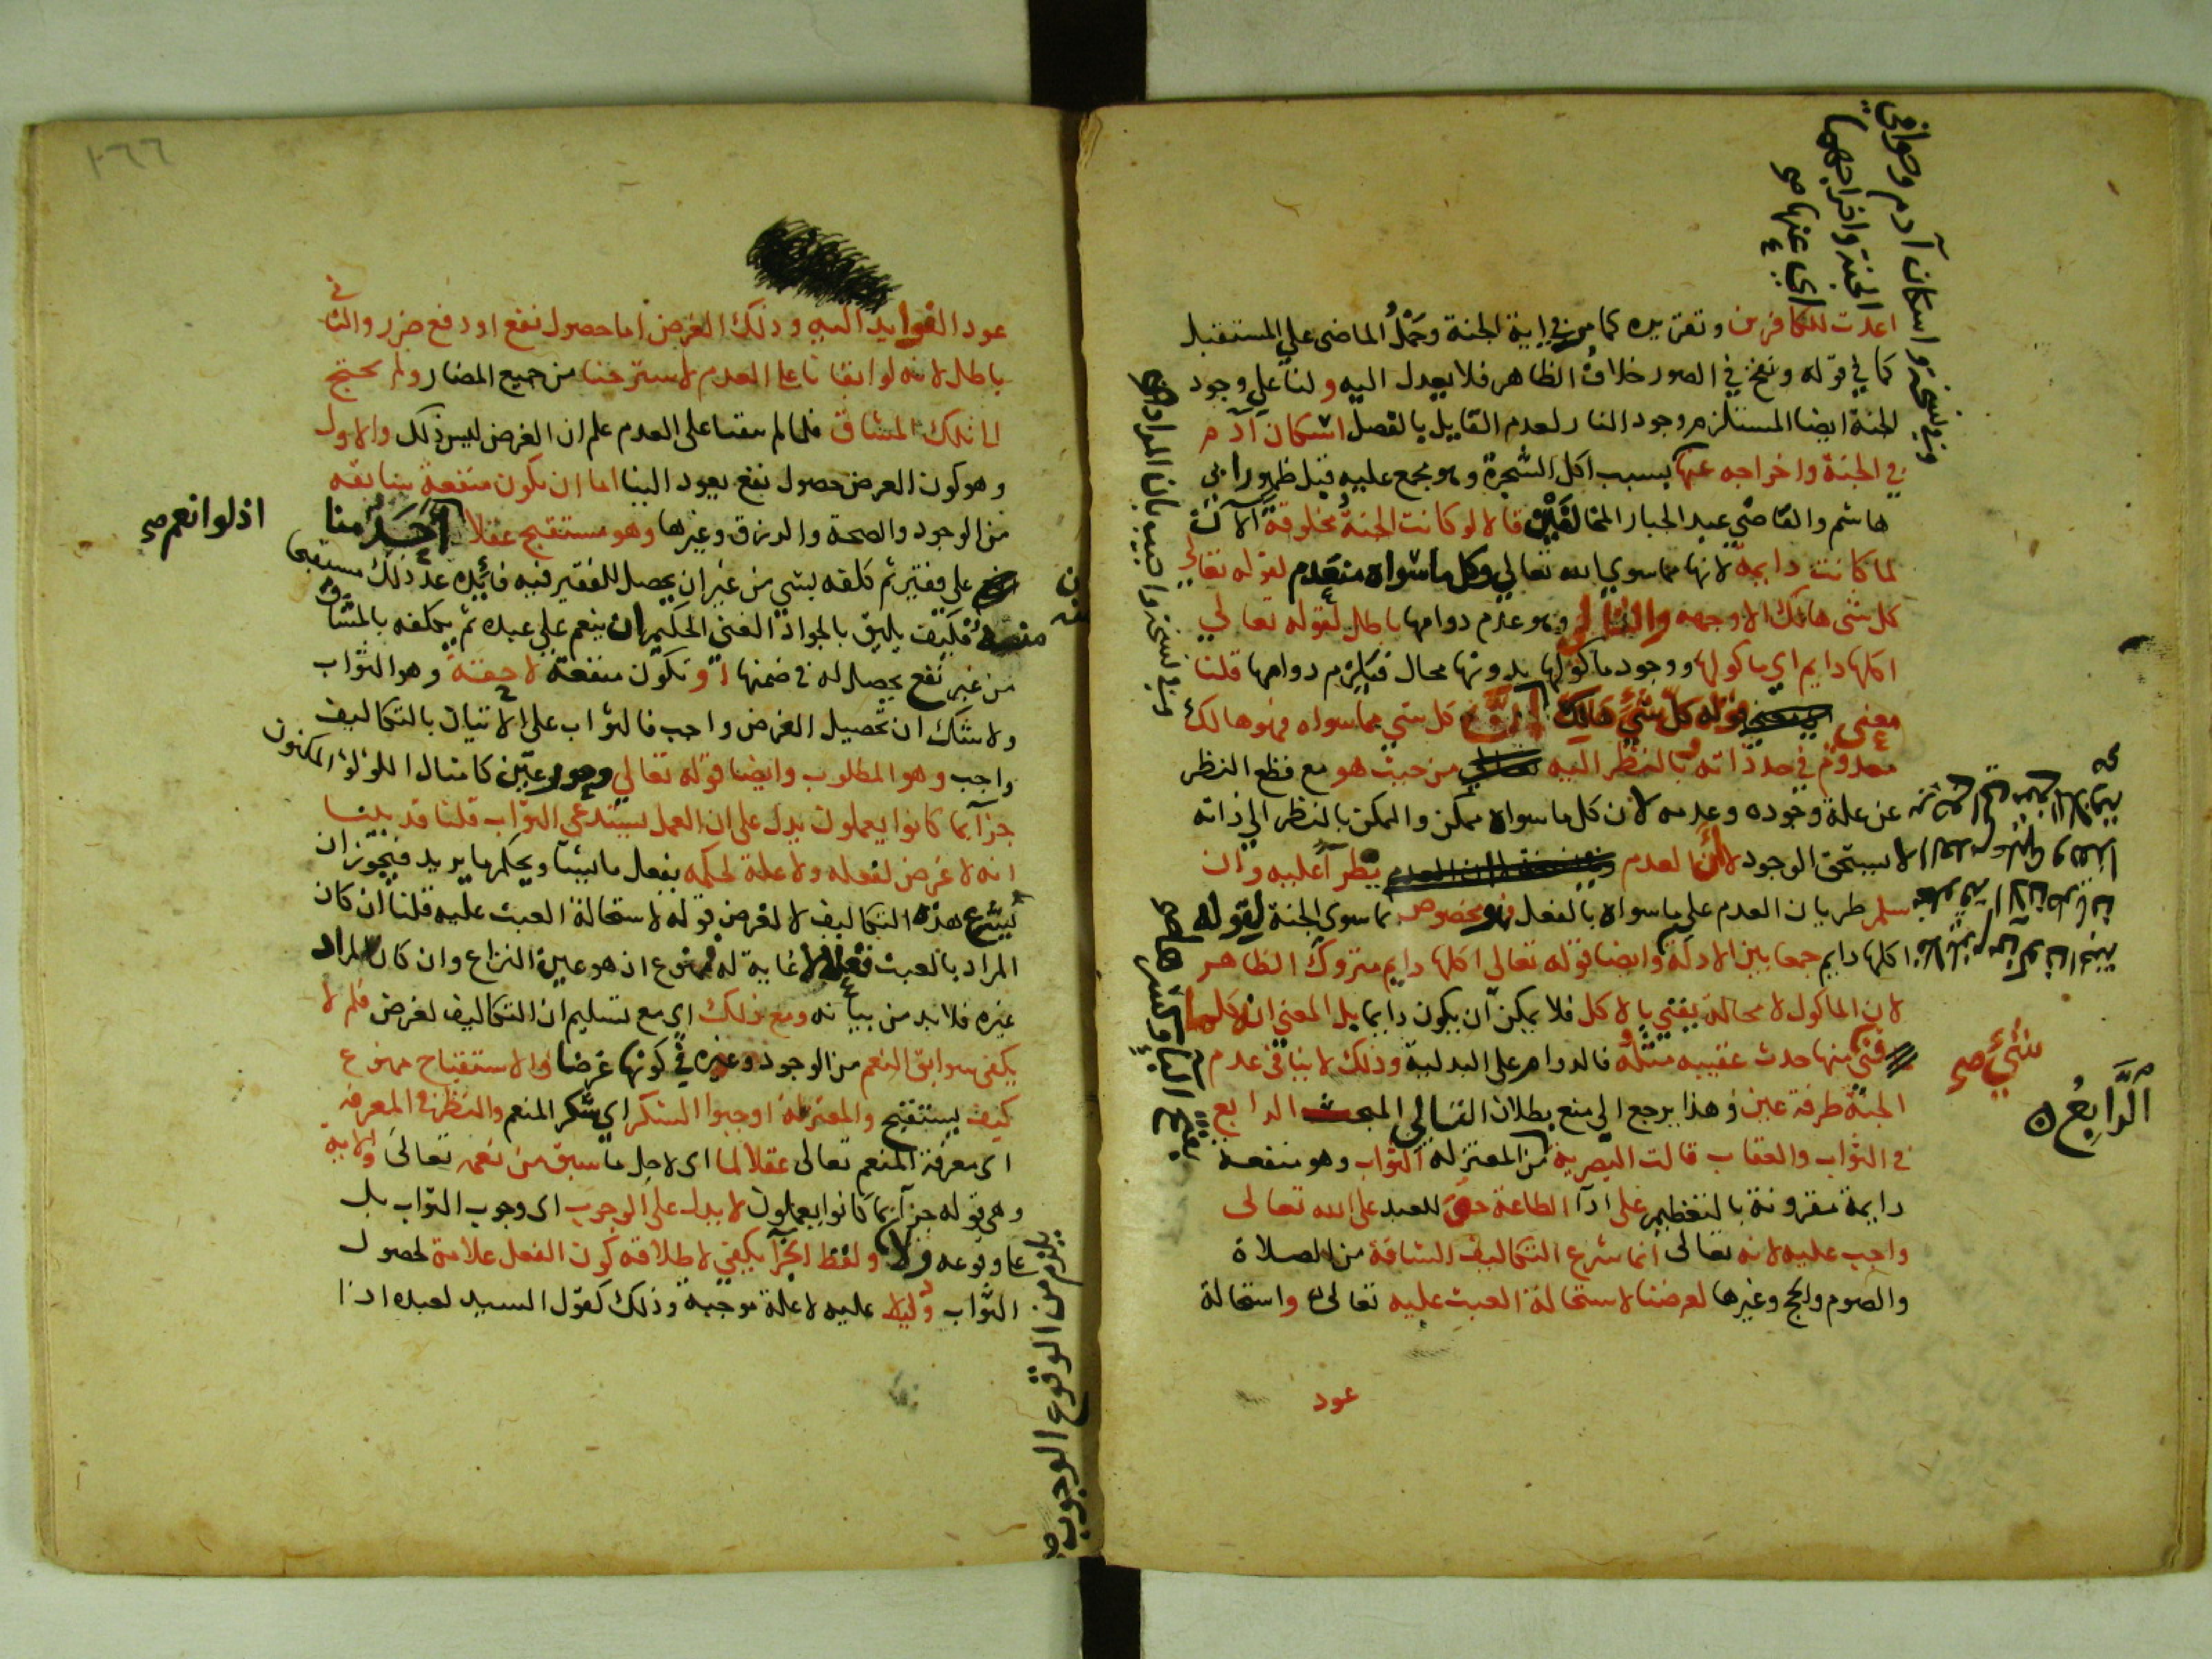 اعدت للكافرين وتقريره كما مر في اية الجنة وحمْلُ الماضي علي المستقبل
كما في قوله ونفخ في الصور خلافُ الظاهر فلا يعدل اليه ولنا علي وجود
الجنة ايضا المستلزم وجود النار لعدم القايل بالفصل اسكان آدم
في الجنة واخراجه عنها بسبب اكل الشجرة وهو مجمع عليه قبل ظهور ابي
هاشم والقاضي عبد الجبار المخالفَيْن قالا لو كانت الجنةُ مخلوقةً الآن
لما كانت دايمة لانها مما سوي الله تعالي وكل ما سواه منعدم لقوله تعالي
كل شي هالك الا وجهه والتالي وهو عدم دوامها باطل لقوله تعالي
اكلها دايم اي ماكولها ووجود ماكولها بدونها محال فيلزم دوامها قلنا
معني قوله كل شيء هالك كل شي مما سواه فهو هالك
معدوم في حد ذاته بالنظر اليه من حيث هو مع قطع النظر
عن علة وجوده وعدمه لان كل ما سواه ممكن والممكن بالنظر الي ذاته
لا يستحق الوجود لا أن العدم يطرأ عليه وان
سلم طريان العدم علي ما سواه بالفعل فهو مخصوص بما سوي الجنة لقوله
اكلها دايم جمعا بين الادلة وايضا قوله تعالي اكلها دايم متروك الظاهر
لان الماكول لا محالة يفني بالاكل فلا يمكن ان يكون دايما بل المعني انه كلما
فني منها حدث عقيبه مثله فالدوام علي البدلية وذلك لا ينافي عدم
الجنة طرفة عين وهذا يرجع الي منع بطلان التالي المبحث الرابع
في الثواب والعقاب قالت البصرية من المعتزلة الثواب وهو منفعة
دايمة مقرونة بالتعظيم علي ادآ الطاعة حق للعبد علي الله تعالي
واجب عليه لانه تعالي انما شرع التكاليف الشاقة من الصلاة
والصوم والحج وغيرها لغرضنا لاستحالة العبث عليه تعالي واستحالة
عود
وفي نسخة واسكان آدم وحوا في
الجنة واخراجهما
اي عنها صح
شيء صح
الرَّابعُ ن
عود الفوايد اليه وذلك الغرض اما حصول نفع او دفع ضرر والثاني
باطل لانه لو ابقانا علي العدم لاسترحنا من جميع المضار ولم نحتج
لتلك المشاق فلما لم يبقنا علي العدم علم ان الغرض ليس ذلك والاول
وهو كون الغرض حصول نفع يعود الينا اما ان يكون منفعة سابقة
من الوجود والصحة والرزق وغيرها وهو مستقبح عقلا أحَدٌ منا
علي فقير ثم كلفه بشي من غير ان يحصل للفقير فيه فائدة عد ذلك مستقبحا
منه فكيف يليق بالجواد الغني الحكيم ان ينعم علي عبده ثم يكلفه بالمشاق
من غير نفع يحصل له في ضمنها او تكون منفعة لاحقة وهو الثواب
ولا شك ان تحصيل الغرض واجب فالثواب علي الاتيان بالتكاليف
واجب وهو المطلوب وايضا قوله تعالي وحور عين كامثال اللؤلؤ المكنون
جزآ بما كانوا يعملون يدل علي ان العمل يستدعي الثواب قلنا قد بينا
انه لا غرض لفعله ولا علة لحكمه يفعل ما يشآ ويحكم ما يريد فيجوز ان
يشرع هذه التكاليف لا لغرض قوله لاستحالة العبث عليه قلنا ان كان
المراد بالعبث فعلا لا غاية له فممنوع اذ هو عين النزاع وان كان المراد
غيره فلا بد من بيانه ومع ذلك اي مع تسليم ان التكاليف لغرض فلم لا
يكفي سوابق النعم من الوجود وغيره في كونها غرضا والاستقباح ممنوع
كيف يستقبح والمعتزلة اوجبوا الشكر اي شكر المنعم والنظر في المعرفة
اي معرفة المنعم تعالي عقلا لما اي لاجل ما سبق من نعمه تعالي والاية
وهي قوله جزآ بما كانوا يعملون لا يدل علي الوجوب اي وجوب الثواب بل
علي وقوعه ولا ولفظ الجزآ يكفي لاطلاقه كون الفعل علامة لحصول
الثواب ودليلا عليه لا علة موجبة وذلك كقول السيد لعبده اذا
اذ لو انعم صح
يلزم من الوقوع الوجوب صح